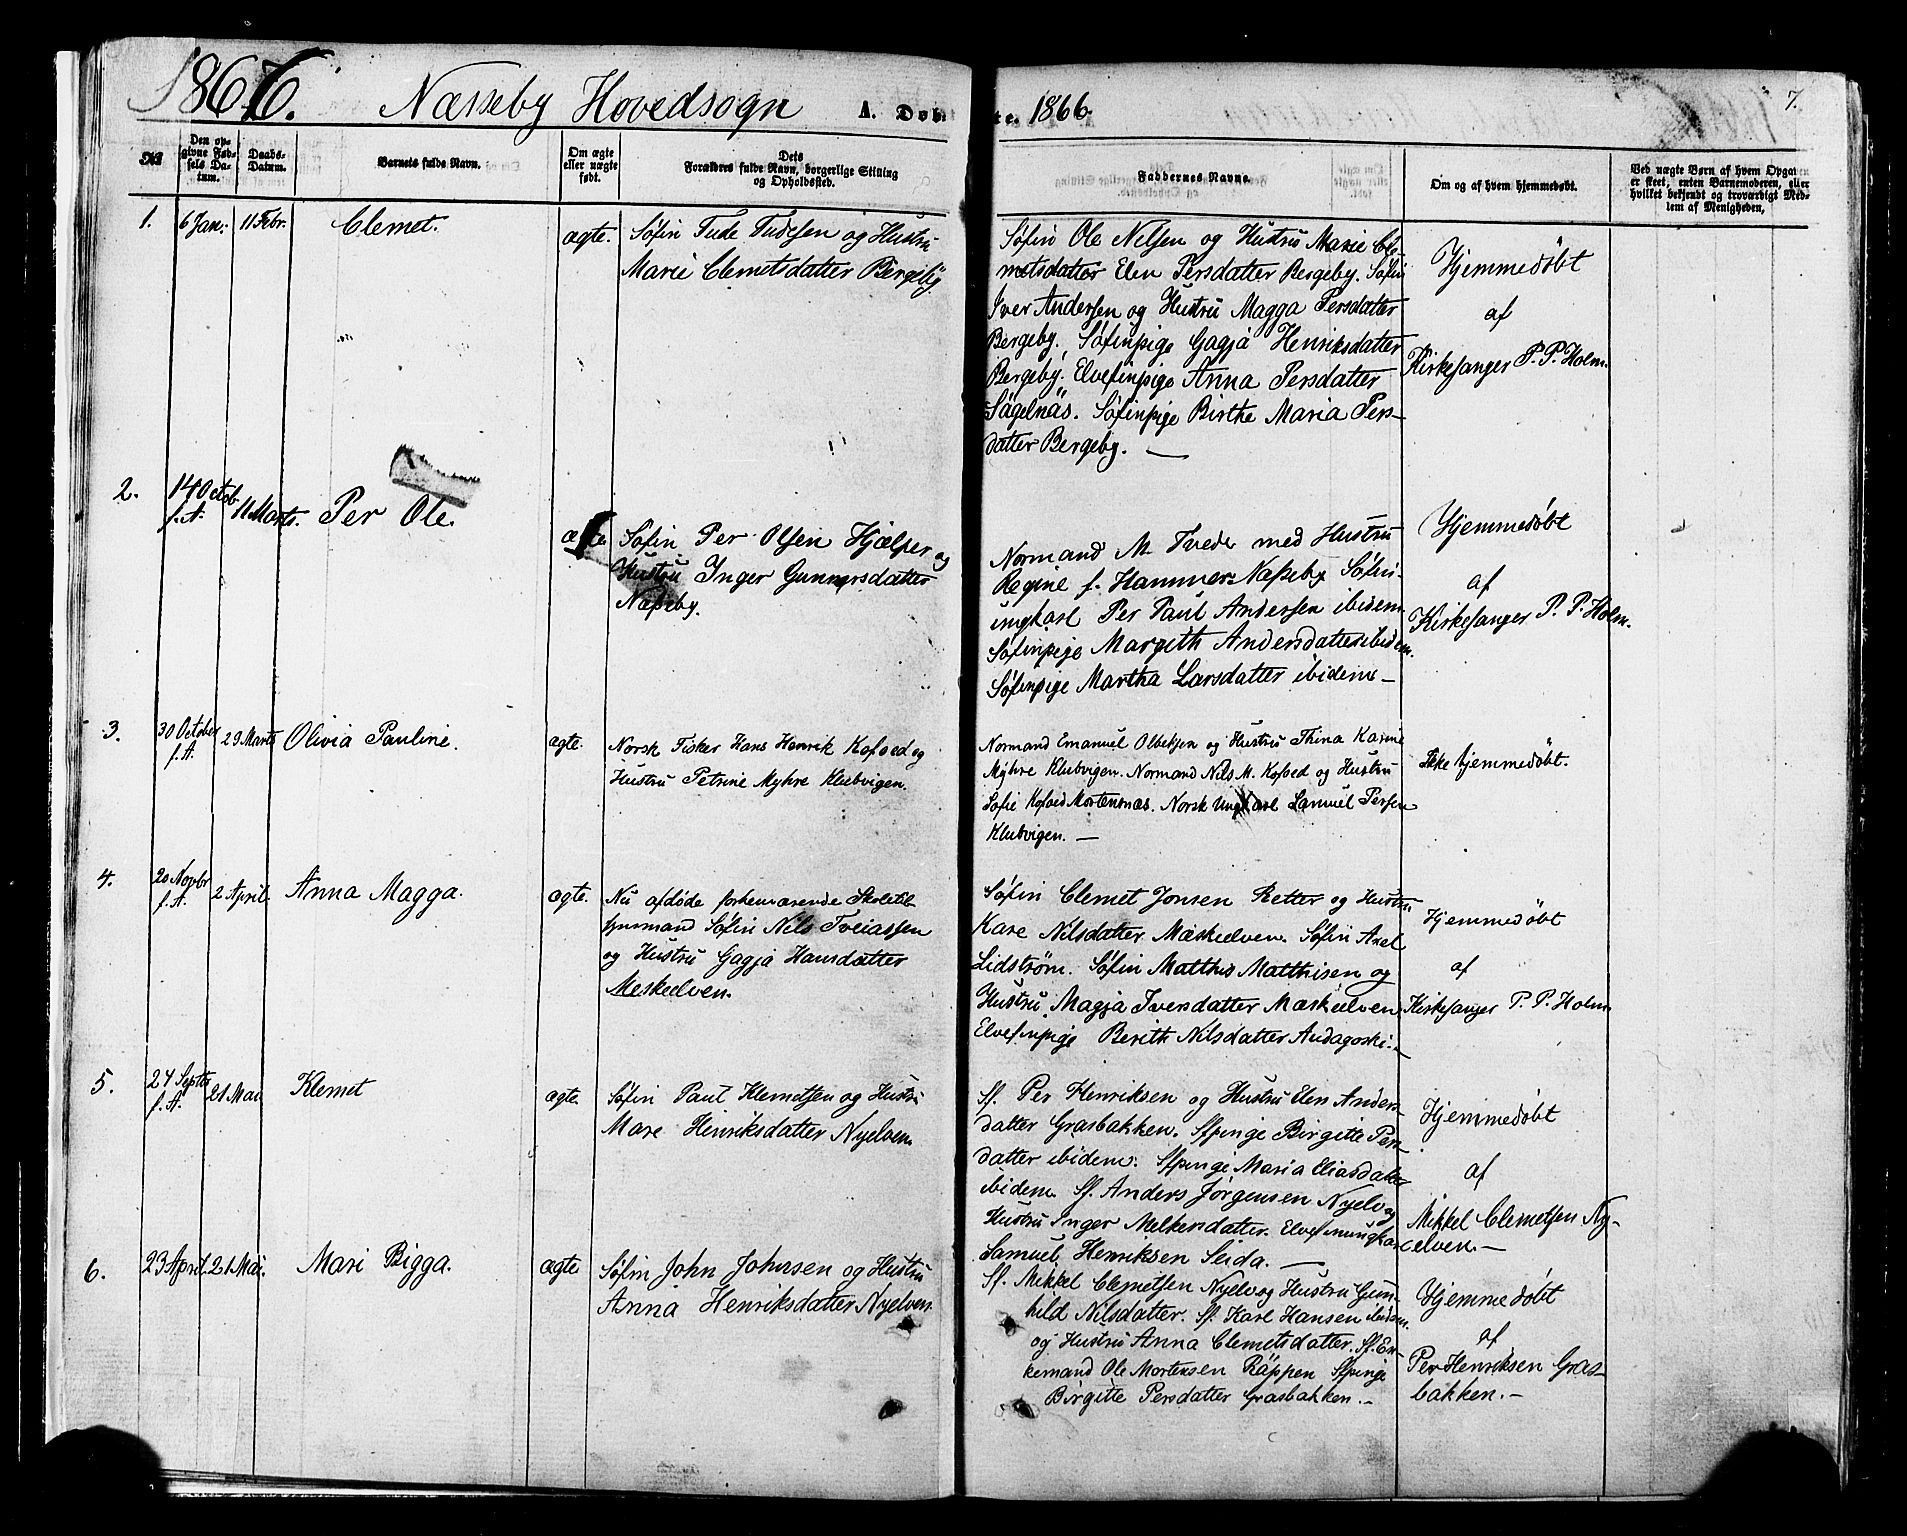 1866. Næsseby Hovedsogn A. Døbte. 1866. 7.
No
Den opgivne Fødsels Datum.
Daabs-Datum.
Barnets fulde Navn.
Om ægte eller uægte født.
Dets Forældres fulde Navn, borgerlige Stilling og Opholdssted.
Faddernes Navne.
Om og af hvem hjemmedøbt.
Ved uægte Børn af hvem Opgaven er skeet, enten Barnemoderen, eller hvilket bekjendt og troværdigt Medlem af Menigheden.
1. 6 Jan: 11 Febr. Clemet. ægte.
Søfin Tude Tudesen og Hustru
Marie Clemetsdatter Bergeby.
Søfin Ole Nelsen og Hustru Marie Cle-
metsdatter Elen Persdatter Bergeby. Søfin
Iver Andersen og Hustru Magga Persdatter
Bergeby. Søfinpige Gagja Henriksdatter
Bergeby. Elvefinpige Anna Persdatter
Sägelnäs. Søfinpige Birthe Maria Pers-
datter Bergeby. —
Hjemmedöbt
af
Kirkesanger P. P. Holm.
2. 14 Octob. f. A. 11 Marts. Per Ole. ægte
Søfin Per Olsen Hjælper og
Hustru Inger Gunnarsdatter
Næsseby.
Normand M. Tveder med Hustru
Regine f. Hammer Næsseby Søfin-
ungkarl Per Paul Andersen ibidem
Søfinpige Margith Andersdatter ibidem.
Søfinpige Martha Larsdatter ibidem —
Hjemmedöbt
af
Kirkesanger P. P. Holm.
3. 30 October f. A. 29 Marts Olivia Pauline. ægte.
Norsk Fisker Hans Henrik Kofoed og
Hustru Petrine Myhre Klubvigen.
Normand Emanuel Olbeksen og Hustru Thina Karine
Myhre Klubvigen. Normand Nils M. Kofoed og Hustru
Sofie Kofoed Mortensnæs. Norsk Ungkarl Samuel Persen
Klubvigen. —
Ikke hjemmedöbt.
4. 20 Novbr f. A. 2 April. Anna Magga. ægte.
Nu afdøde forhenværende Skoletil-
synsmand Søfin Nils Tveiassen
og Hustru Gagja Hansdatter
Meskeelven.
Søfin Clemet Jonsen Retter og Hustru
Kare Nilsdatter Mæskeelven. Søfin Axel
Lidström. Søfin Matthis Matthisen og
Hustru Magja Iversdatter Mæskeelven
Elvefinpige Berith Nilsdatter Audagoski. —
Hjemmedöbt
af
Kirkesanger P. P. Holm
5. 24 Septbr f. A. 21 Mai Klemet ægte.
Søfin Paul Klemetsen og Hustru
Mare Henriksdatter Nyelven
Sf. Per Henriksen og Hustru Elen Anders-
datter Grasbakken. Sfpinge Birgitte Pers-
datter ibidem. Sfpinge Maria Eliasdatter
ibidem. Sf. Anders Jørgensen Nyelv og
Hustru Inger Melkersdatter. Elvefinungkarl
Samuel Henriksen Seida. —
Hjemmedöbt
af
Mikkel Clemetsen Ny-
elven. —
6. 23 April. 21 Mai. Mari Bigga. ægte
Søfin John Johnsen og Hustru
Anna Henriksdatter Nyelven
Sf. Mikkel Clemetsen Nyelv og Hustru Gun-
hild Nilsdatter. Sf. Karl Hansen ibidem
og Hustru Anna Clemetsdatter. Sf. En-
kemand Ole Mortensen Räppen Sfpinge
Birgitte Persdatter Grasbakken. —
Hjemmedöbt
af
Per Henriksen Gras-
bakken. —